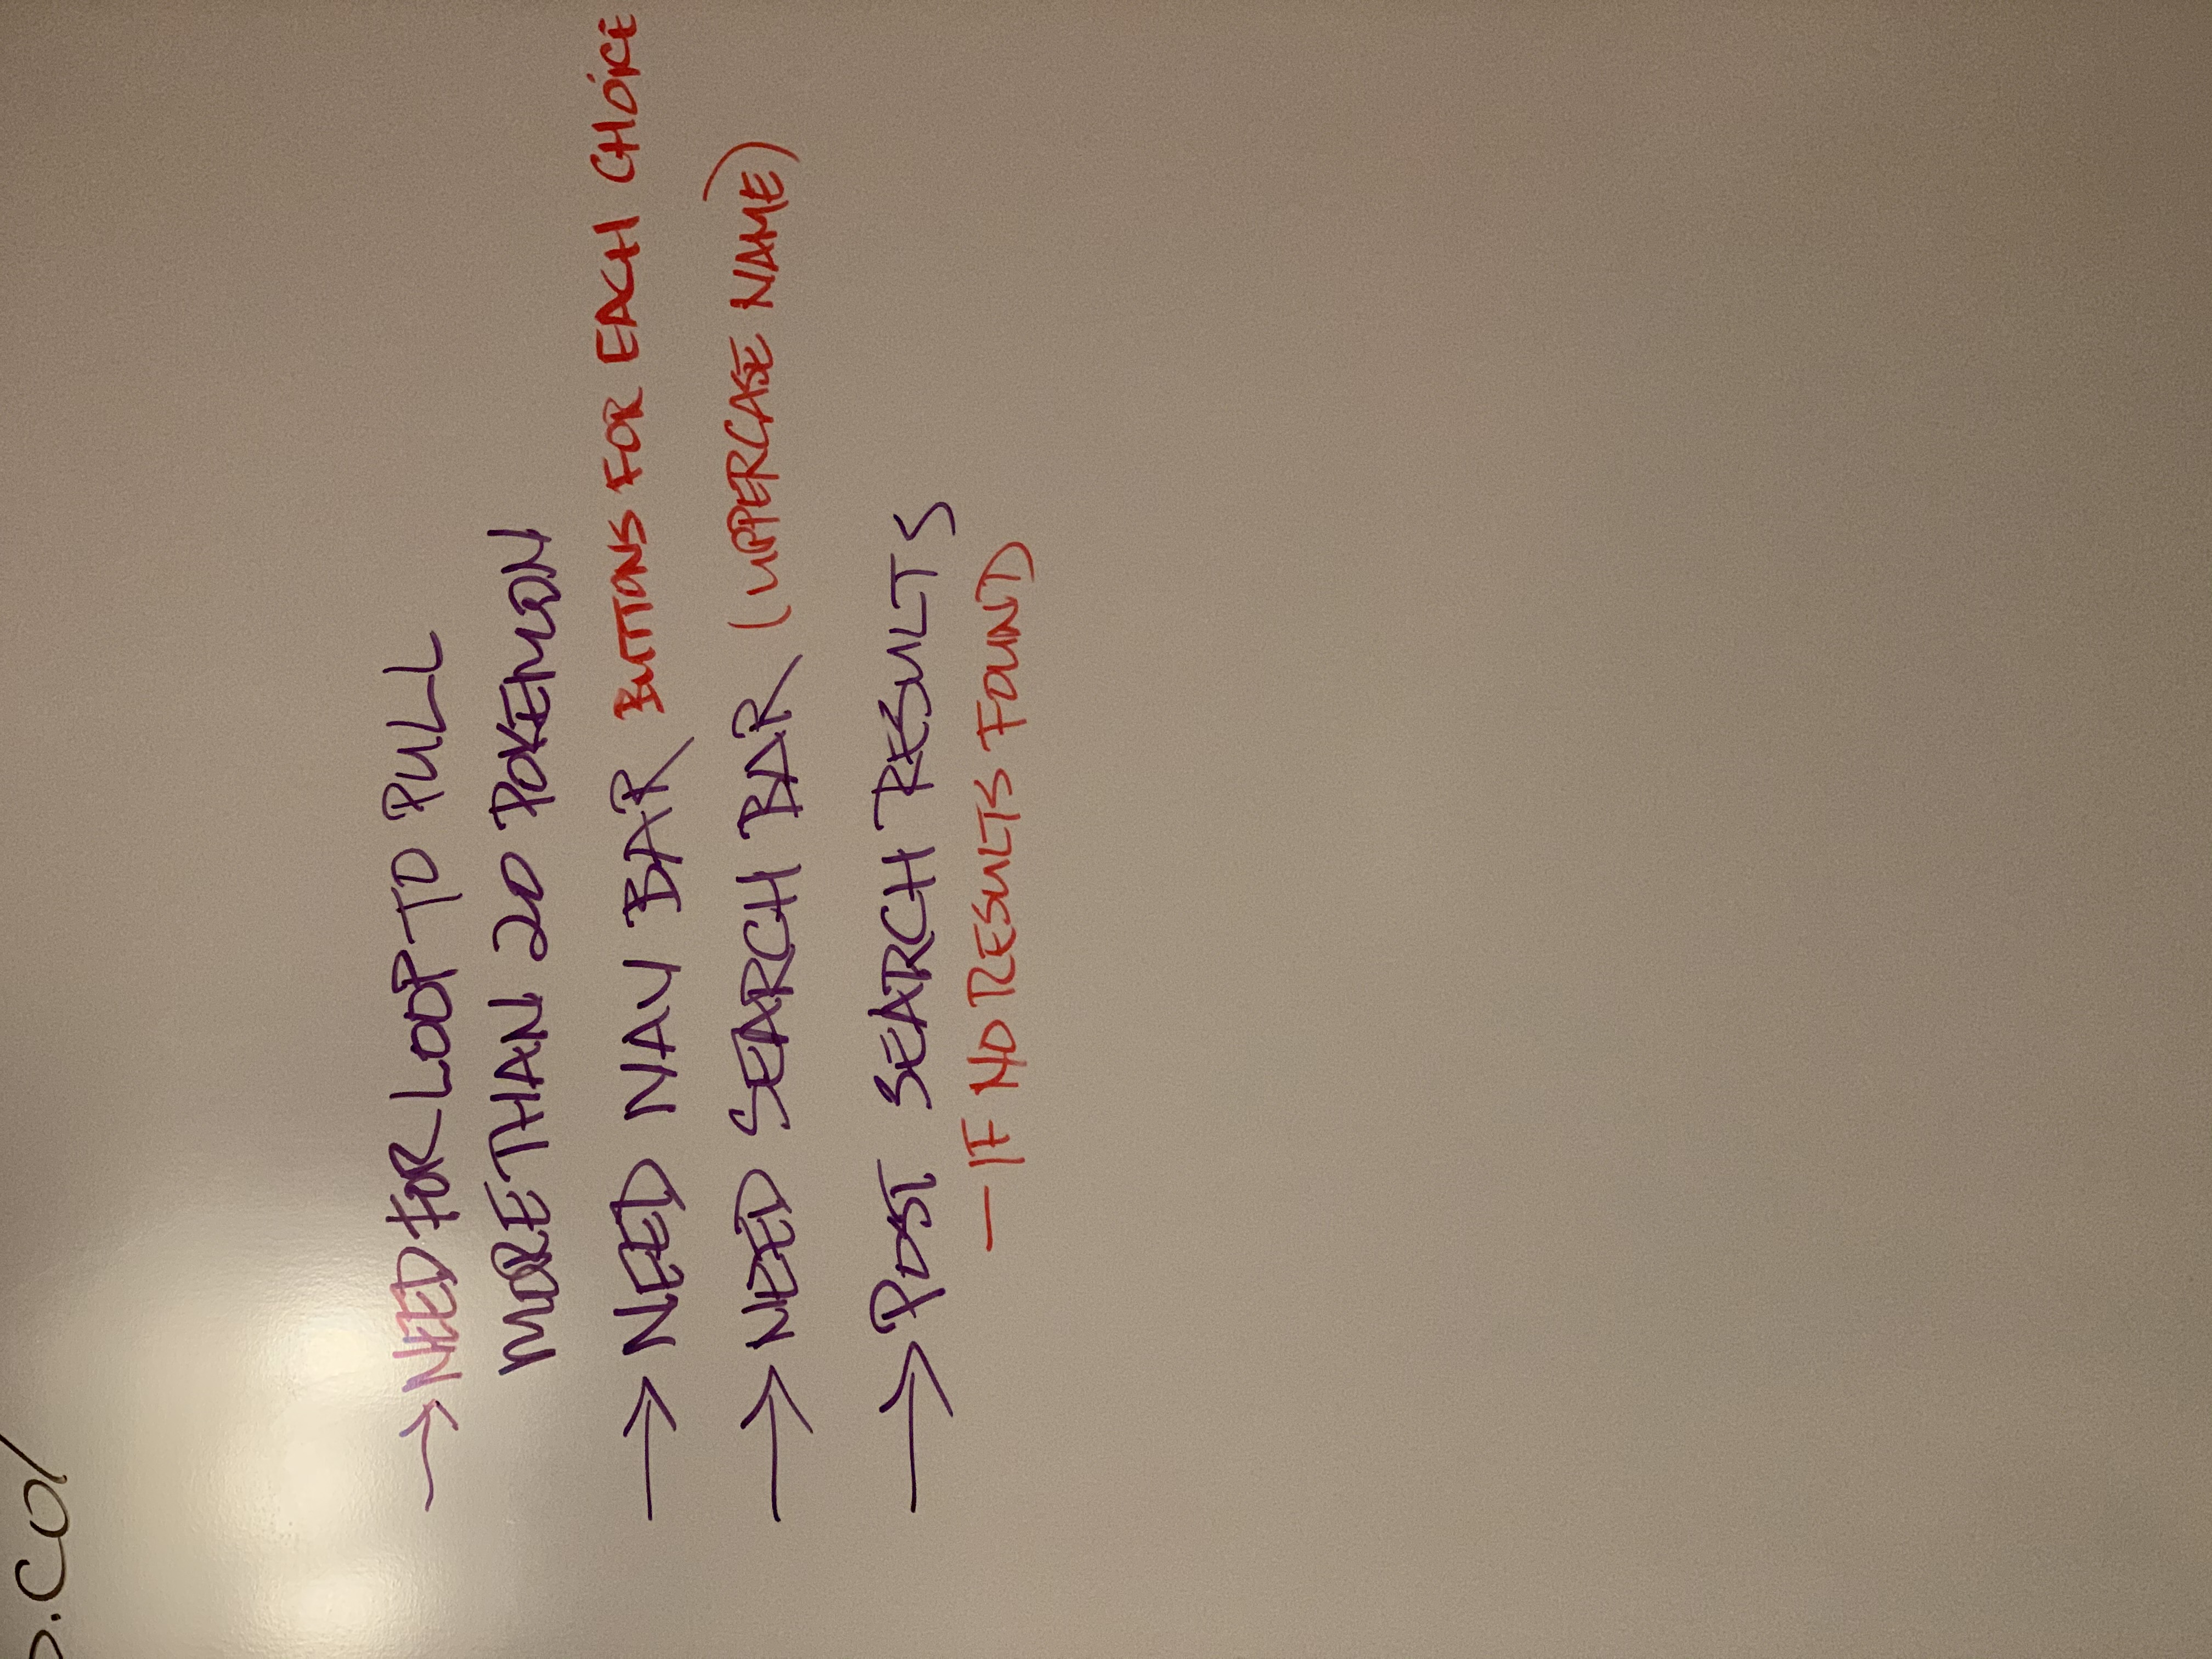 → NEED FOR LOOP TO PULL
MORE THAN 20 POKEMON
→ NEED NAV BAR BUTTONS FOR EACH CHOICE
→ NEED SEARCH BAR (UPPERCASE NAME)
→ POST SEARCH RESULTS
— IF NO RESULTS FOUND